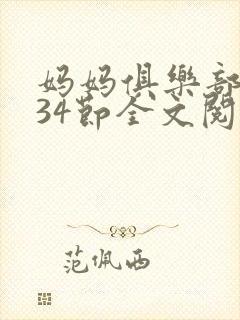 妈妈俱樂部
34節全文閱
范佩西